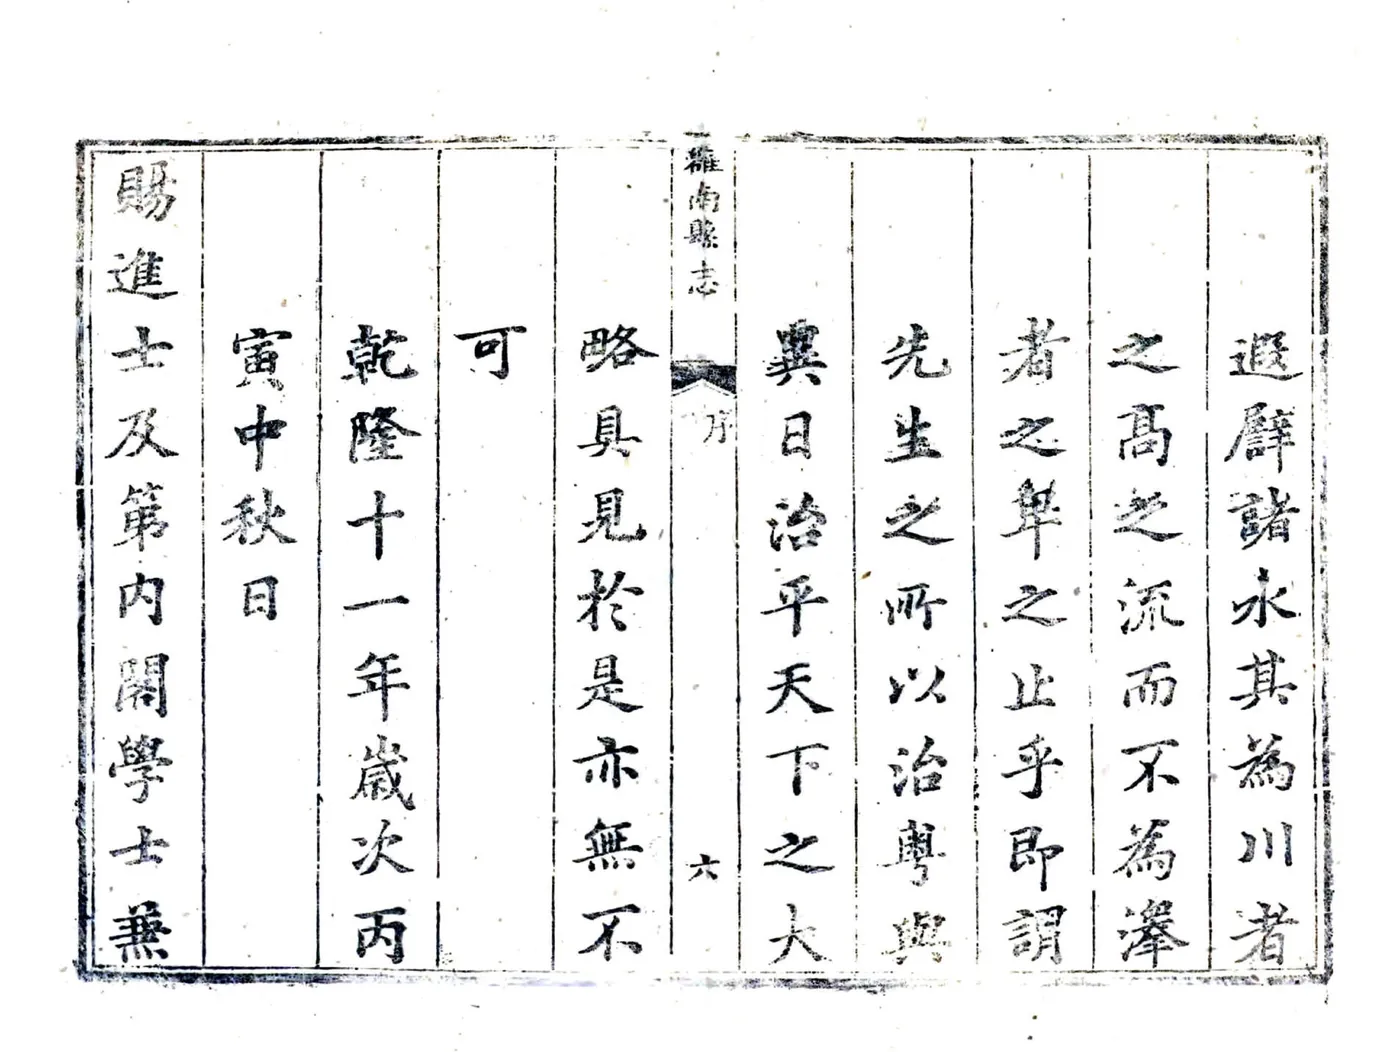 遐辟諸水其為川者
之高之流而不為澤
者之卑之止乎即謂
先生之所以治粵與
異日治平天下之大
雒南縣志
序
六
略具見於是亦無不
可
乾隆十一年歲次丙
寅中秋日
賜進士及第內閣學士兼